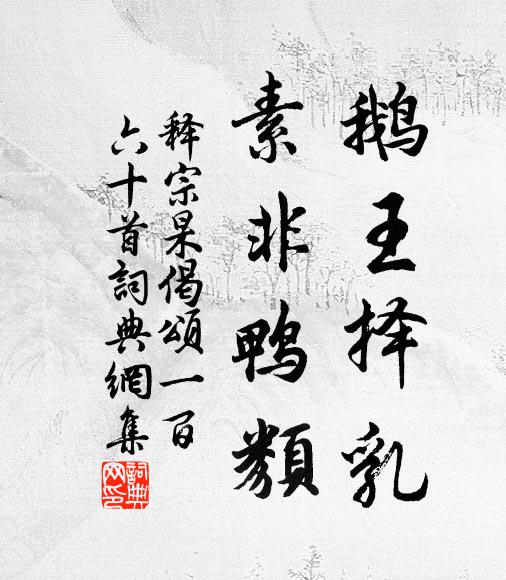 鹅王择乳
素非鸭类
释宗杲偈颂一百
六十首詞典網集
詞典
网印